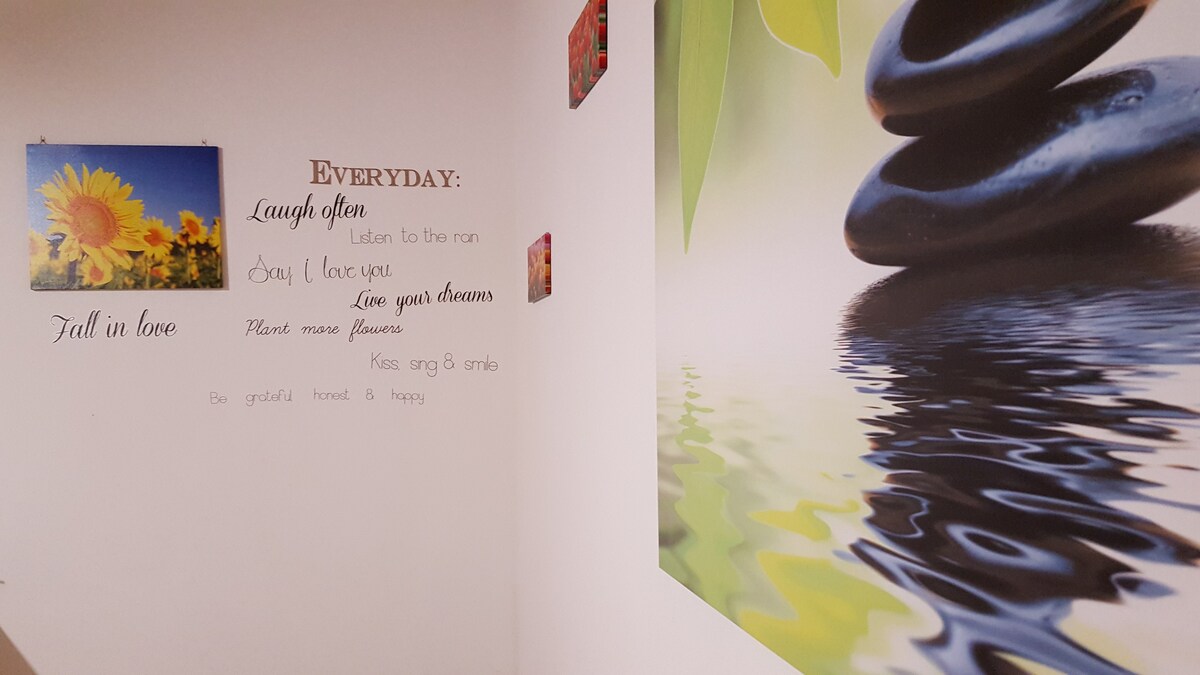 EVERYDAY:
Laugh often
Listen to the rain
Say i love you
Live your dreams
Fall in love
Plant more flowers
Kiss, sing & smile
Be grateful honest & happy